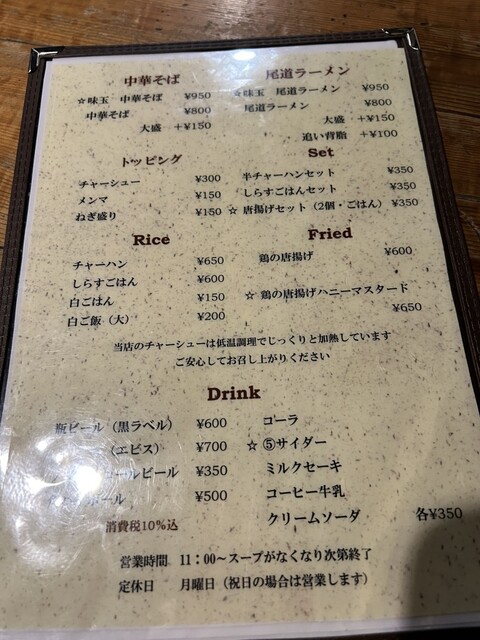 中華そば
☆味玉 中華そば ¥950
中華そば ¥800
大盛 +¥150
尾道ラーメン
☆味玉 尾道ラーメン ¥950
尾道ラーメン ¥800
大盛 +¥150
追い背脂 +¥100
トッピング
チャーシュー ¥300
メンマ ¥150
ねぎ盛り ¥150
Set
半チャーハンセット ¥350
しらすごはんセット ¥350
☆ 唐揚げセット（2個・ごはん） ¥350
Rice
チャーハン ¥650
しらすごはん ¥600
白ごはん ¥150
白ご飯（大） ¥200
Fried
鶏の唐揚げ ¥600
☆ 鶏の唐揚げハニーマスタード
¥650
当店のチャーシューは低温調理でじっくりと加熱しています
ご安心してお召し上がりください
Drink
瓶ビール（黒ラベル） ¥600
（エビス） ¥700
ールビール ¥350
ボール ¥500
消費税10%込
コーラ
☆ ⑤サイダー
ミルクセーキ
コーヒー牛乳
クリームソーダ 各¥350
営業時間 11：00～スープがなくなり次第終了
定休日 月曜日（祝日の場合は営業します）